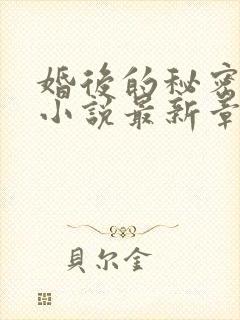 婚後的秘密
小說最新章
貝尔金